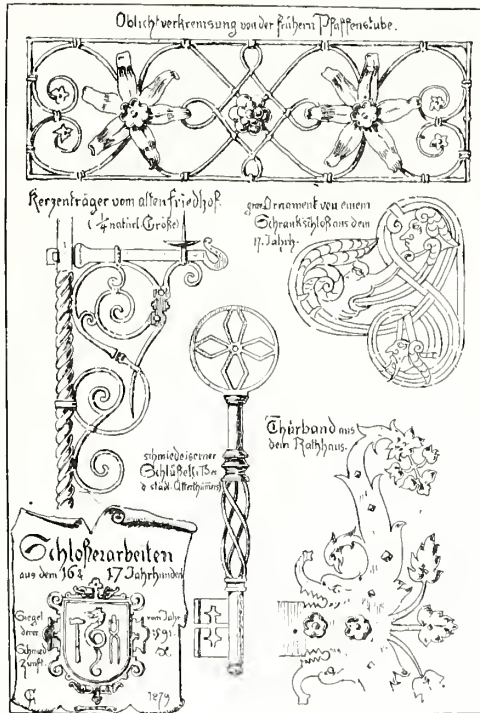 Oblichtverkremsung von der frühern Pfaffenstube.
Kerzenträger vom alten Friedhof.
(¼ natürl. Größe)
grav. Ornament von einem
Schrankschloß aus dem
17. Jahrh.
schmiedeiserner
Schlüßel i. Bes.
d. städ.
Thürband aus
dem Rathhaus.
Schloßerarbeiten
aus dem 16 & 17 Jahrhundert
Siegel
derer
Schmied
Zunft.
vom Jahr
1591.
1879